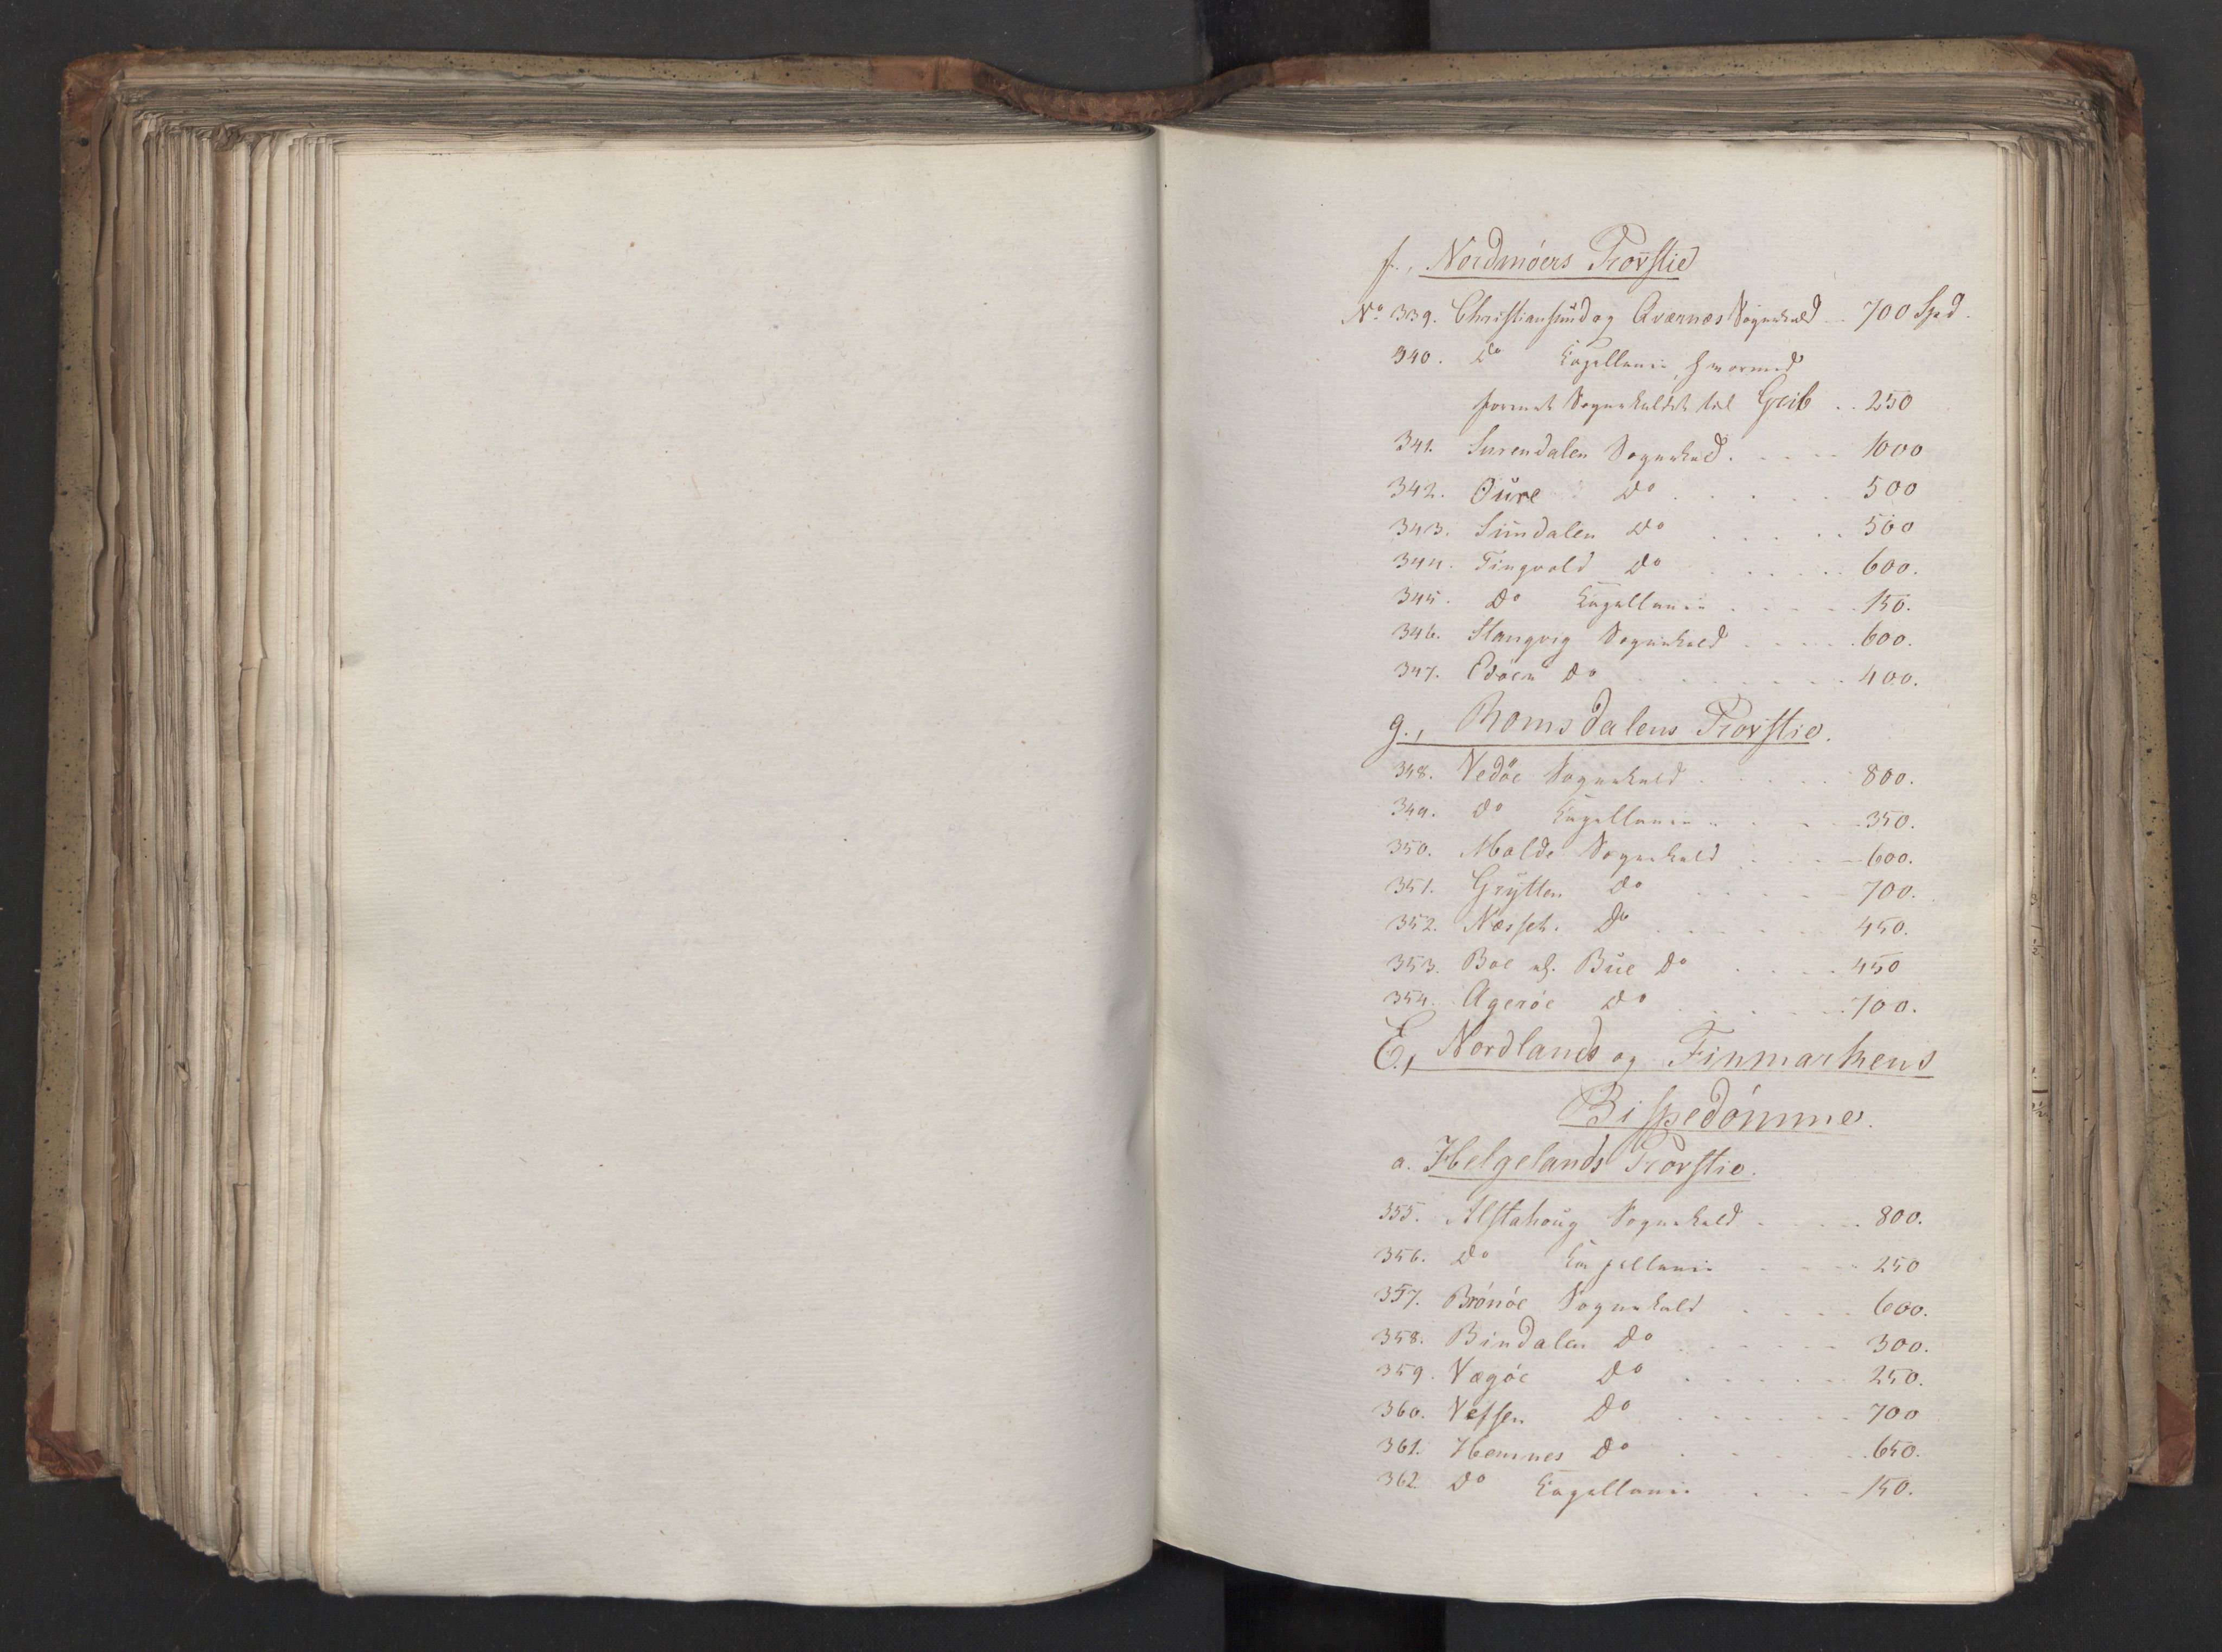 f., Nordmöers Provstie
No 339. Christiansund og Qværnæs Sognekald .. 700 Spd.
340. Do Capellanie, hvormed
forenet Sognekaldet til Grib .. 250
341. Surendalen Sognekald. . . . . 1000
342. Oure Do . . . . . 500
343. Sundalen Do . . . . . 500
344. Tingvold Do . . . . . 600.
345. Do Capellanie . . . . . 150.
346. Stangvig Sognekald . . . . . 600.
347. Edöen Do . . . . . . . 400.
g., Romsdalens Provstie.
348. Vedöe Sognekald . . . . . 800.
349. Do Capellanie . . . . 350.
350. Molde Sognekald . . . . 600.
351. Grytten Do . . . . . 700.
352. Næsset. Do . . . . . . 450.
353. Boe al. Bue Do . . . . 450
354. Agerøe Do . . . . . . 700.
E., Nordlands og Finmarkens
Bispedömme.
a. Helgelands Provstie.
355. Alstahoug Sognekald . . . . . 800.
356. Do Capellanie . . . . 250
357. Brönöe Sognekald . . . . . 600.
358. Bindalen Do . . . . . . 300.
359. Vægöe Do . . . . . . 250.
360. Vefsen Do . . . . . . 700
361. Hemnes Do . . . . . 650.
362. Do Capellanie . . . 150.